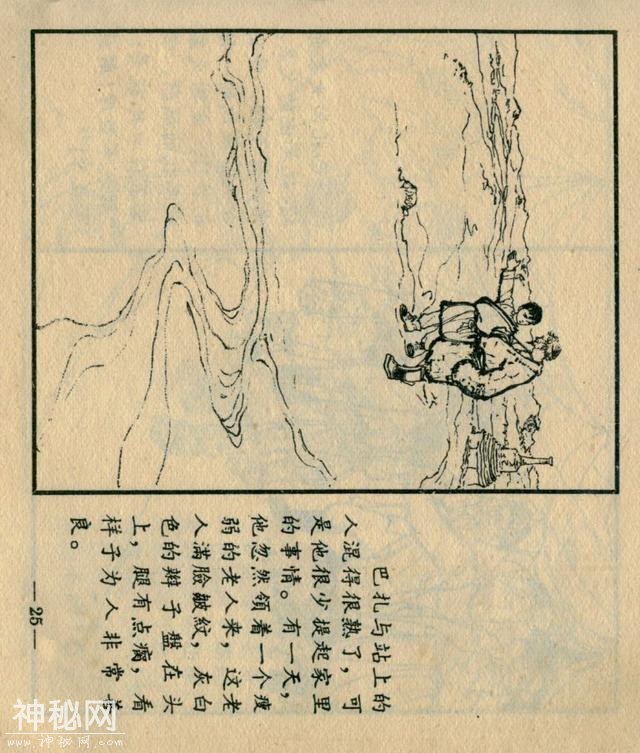 巴扎与站上的
人混得很熟了，可
是他很少提起家里
的事情。有一天，
他忽然領着一个瘦
弱的老人来，这老
人满臉皱紋，灰白
色的辮子盤在头
上，腿有点瘸，看
样子为人非常
良。
—25—
神秘网